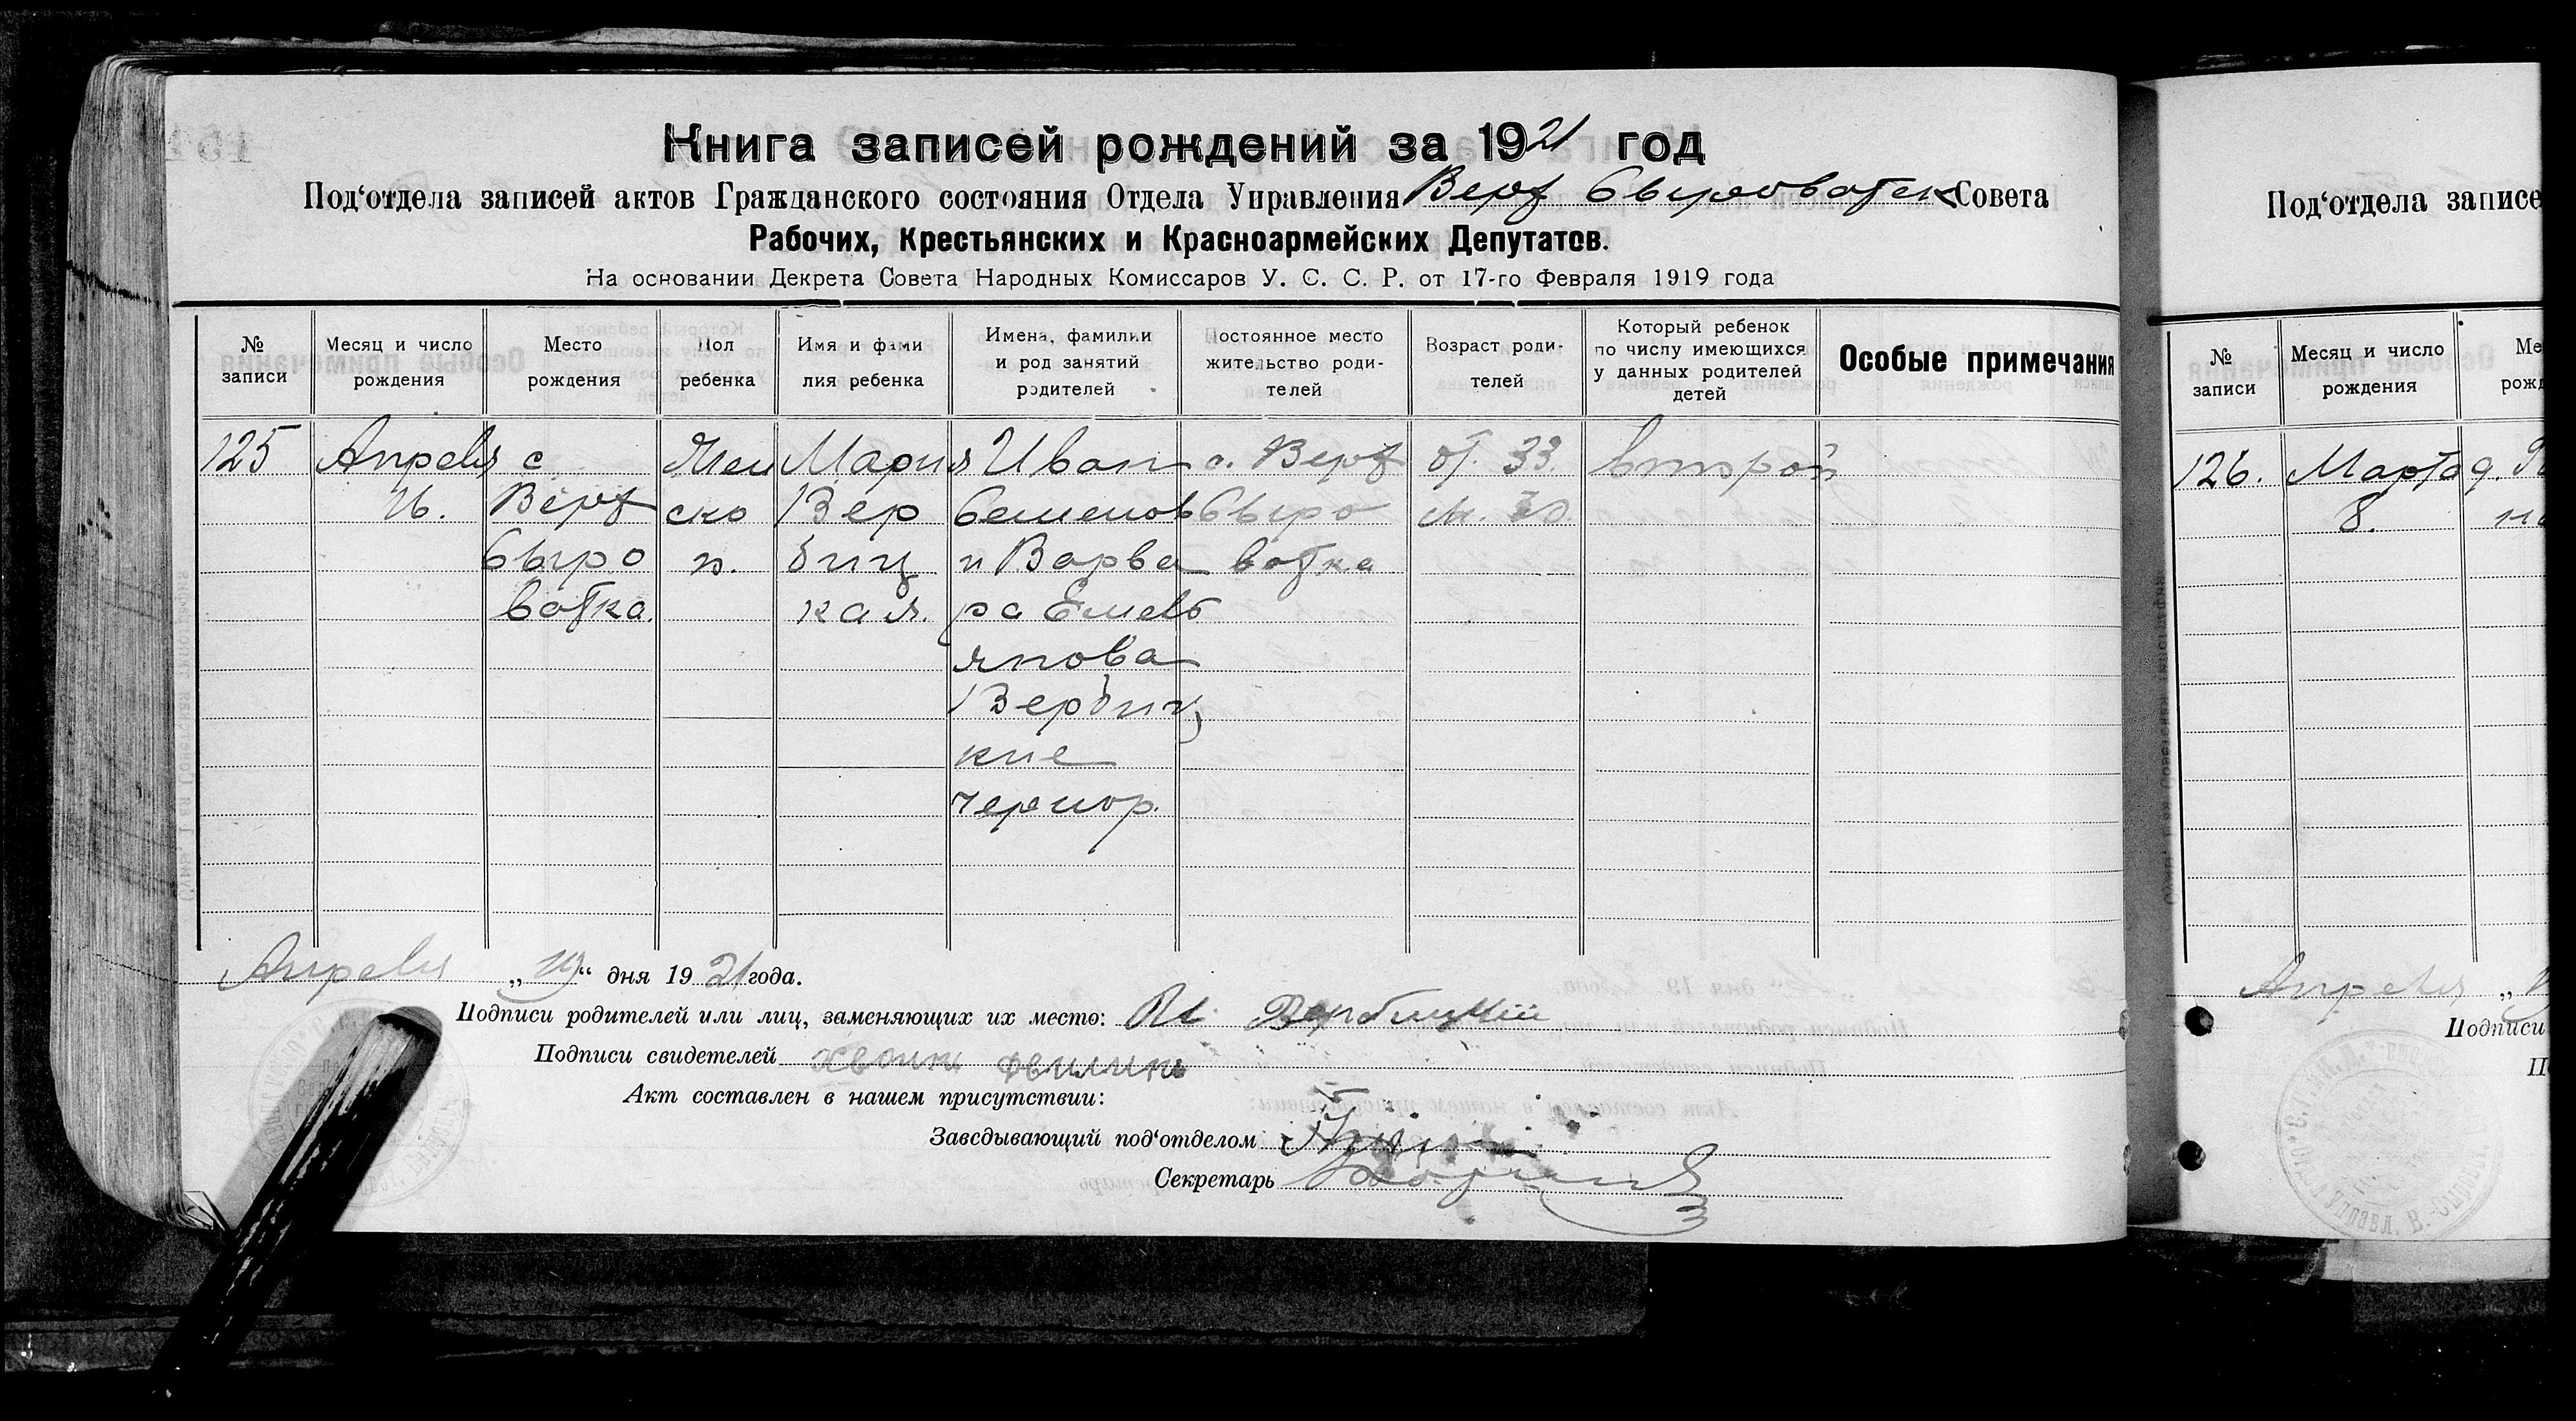 Книга записей рождений за 1921 год
Под'отдела записей актов Гражданского состояния Отдела Управления Верх Сыроватск Совета
Рабочих, Крестьянских и Красноармейских Депутатов.
На основании Декрета Совета Народных Комиссаров У. С. С. Р. от 17-го Февраля 1919 года
№ записи
Месяц и число рождения
Место рождения
Пол ребенка
Имя и фами лия ребенка
Имена, фамилии и род занятий родителей
Постоянное место жительство роди- телей
Возраст роди- телей
Который ребенок по числу имеющихся у данных родителей детей
Особые примечания
125 Апреля с Жен Мария Иван с. Верх от. 33 второй
16. Верх ско Вер Семенов Сыро м. 30
Сыро п. биц и Варва ватка
ватка. кая. ра Емель
янова
Вербиц
кие
чернор.
Апреля „19“ дня 1921 года.
Подписи родителей или лиц, заменяющих их место: Вербицкий
Подписи свидетелей
Акт составлен в нашем присутствии:
Заведывающий под'отделом
Секретарь
Под'отдела записе
№ записи
Месяц и число рождения
Ме рожд
126. Марта д.
8.
Апреля „
Подписи
П